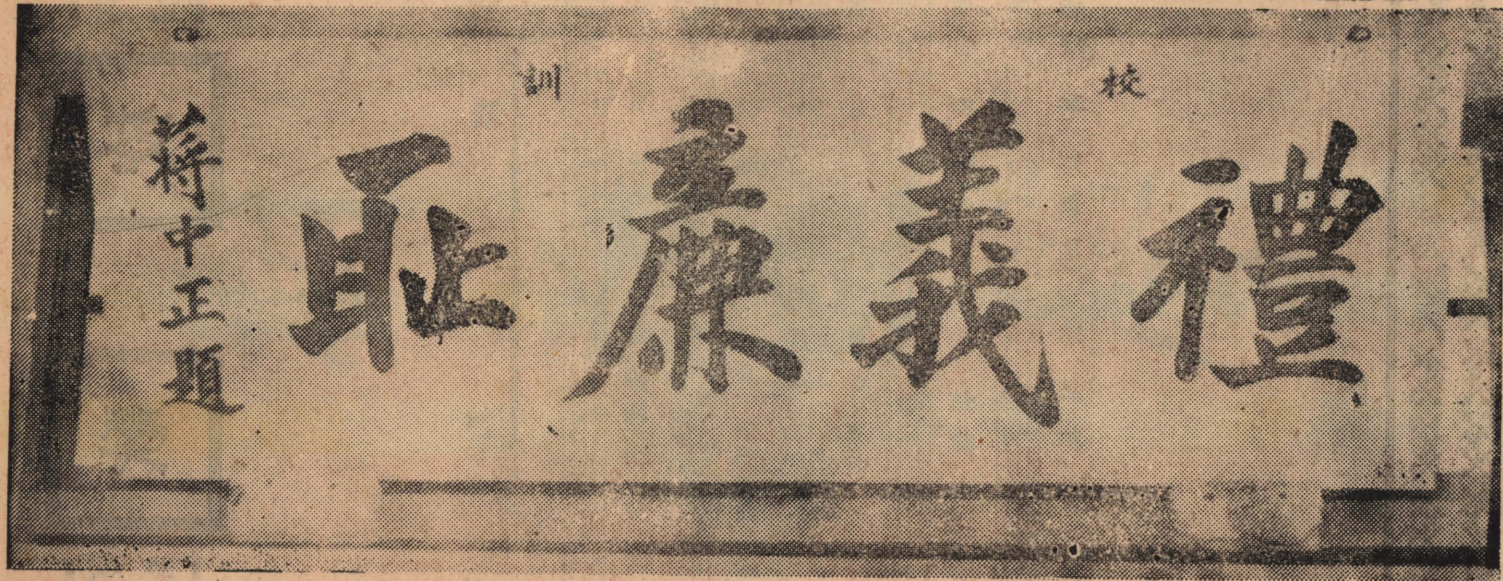 校訓
禮義廉耻
蔣中正題